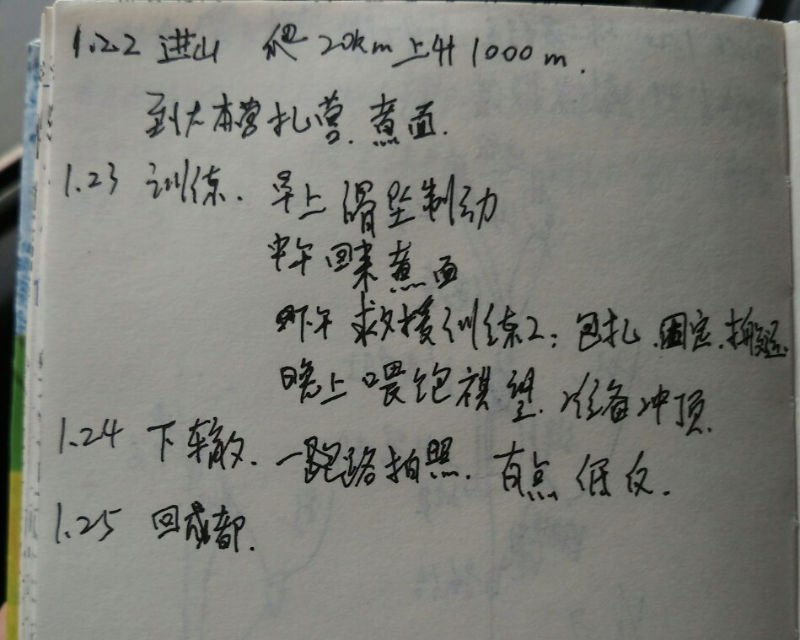 1.22 进山 爬20km上升1000m.
到大本营扎营.煮面.
1.23 训练. 早上 滑坠制动
中午 回来煮面
下午 救援训练2:包扎.固定.搬运.
晚上 喂饱祺望.准备冲顶.
1.24 下撤. 一路拍照.有点低反.
1.25 回成都.